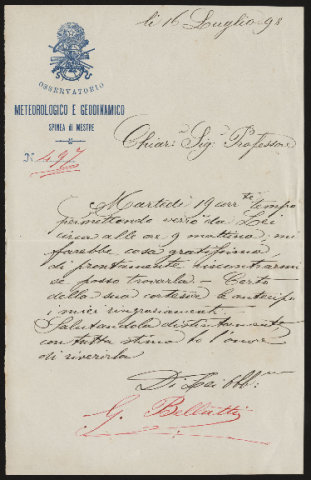 li 16 Luglio 98
OSSERVATORIO
METEOROLOGICO E GEODINAMICO
SPINEA DI MESTRE
N. 497
Chiar: Sig. Professore
Martedì 19 corr.te tempo
permettendo verrò da Lei
circa alle ore 9 mattina, mi
farebbe cosa gratissima
di prontamente riscontrarmi
se posso trovarla. - Certo
della sua cortesia Le anticipo
i miei ringraziamenti.
Salutandola distintamente
con tutta stima ho l'onore
di riverirla
Di Lei Obb:
G. Bellatti